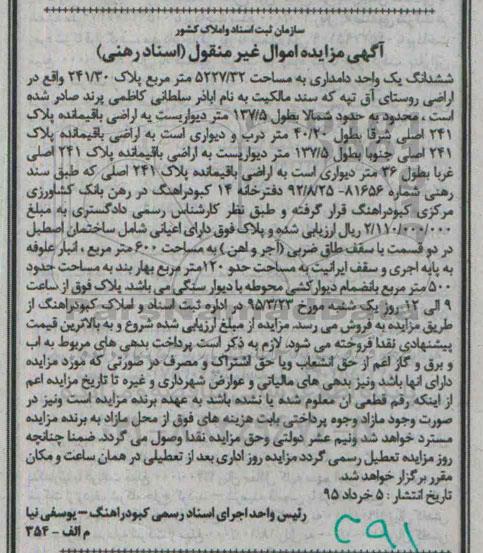 سازمان ثبت اسناد و املاک کشور
آگهی مزایده اموال غیر منقول (اسناد رهنی)
ششدانگ یک واحد دامداری به مساحت ۵۲۲۷/۳۲ متر مربع پلاک ۲۴۱/۳۰ واقع در
اراضی روستای آق تپه که سند مالکیت به نام اباذر سلطانی کاظمی پرند صادر شده
است ، محدود به حدود شمالا بطول ۱۳۷/۵ متر دیواریست به اراضی باقیمانده پلاک
۲۴۱ اصلی شرقا بطول ۴۰/۲۰ متر درب و دیواری است به اراضی باقیمانده پلاک
۲۴۱ اصلی جنوبا بطول ۱۳۷/۵ متر دیواریست به اراضی باقیمانده پلاک ۲۴۱ اصلی
غربا بطول ۳۶ متر دیواری است به اراضی باقیمانده پلاک ۲۴۱ اصلی که طبق سند
رهنی شماره ۸۱۶۵۶- ۹۲/۸/۲۵ دفترخانه ۱۴ کبودراهنگ در رهن بانک کشاورزی
مرکزی کبودراهنگ قرار گرفته و طبق نظر کارشناس رسمی دادگستری به مبلغ
۲/۱۱۰/۰۰۰/۰۰۰ ریال ارزیابی شده و پلاک فوق دارای اعیانی شامل ساختمان اصطبل
در دو قسمت با سقف طاق ضربی (آجر و اهن ) به مساحت ۶۰۰ متر مربع ، انبار علوفه
به پایه اجری و سقف ایرانیت به مساحت حدو ۱۲۰متر مربع بهار بند به مساحت حدود
۵۰۰ متر مربع بانضمام دیوارکشی محوطه با دیوار سنگی می باشد. پلاک فوق از ساعت
۹ الی ۱۲ روز یک شنبه مورخ ۹۵/۳/۲۳ در اداره ثبت اسناد و املاک کبودراهنگ از
طریق مزایده به فروش می رسد. مزایده از مبلغ ارزیابی شده شروع و به بالاترین قیمت
پیشنهادی نقدا فروخته می شود. لازم به ذکر است پرداخت بدهی های مربوط به اب
و برق و گاز اعم از حق انشعاب ویا حق اشتراک و مصرف در صورتی که مورد مزایده
دارای انها باشد ونیز بدهی های مالیاتی و عوارض شهرداری و غیره تا تاریخ مزایده اعم
از اینکه رقم قطعی ان معلوم شده یا نشده باشد به عهده برنده مزایده است ونیز در
صورت وجود مازاد وجوه پرداختی بابت هزینه های فوق از محل مازاد به برنده مزایده
مسترد خواهد شد ونیم عشر دولتی وحق مزایده نقدا وصول می گردد. ضمنا چنانچه
روز مزایده تعطیل رسمی گردد مزایده روز اداری بعد از تعطیلی در همان ساعت و مکان
مقرر برگزار خواهد شد.
تاریخ انتشار : ۵ خرداد ۹۵
رئیس واحد اجرای اسناد رسمی کبودراهنگ – یوسفی نیا
م الف - ۳۵۴